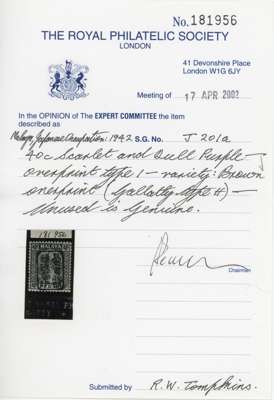 No. 181956
THE ROYAL PHILATELIC SOCIETY
LONDON
41 Devonshire Place
London W1G 6JY
Meeting of 17 APR 2002
In the OPINION of The EXPERT COMMITTEE the item
described as
Malaya, Japanese Occupation: 1942 S.G. No. J 201a
40c Scarlet and Dull Purple—
overprint type 1 – variety: Brown
overprint (Gallatly type II) —
Unused is Genuine.
Chairman
181 956
MALAYA
Submitted by R.W. Tompkins.